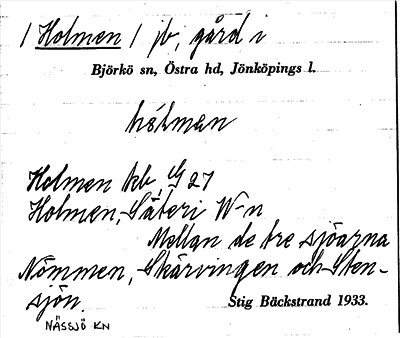 / Holmen / jb, gård i
Björkö sn, Östra hd, Jönköpings l.
hólman
Holmen kb, G 27
Holmen, Säteri W-n
Mellan de tre sjöarna
Nömmen, Skärvingen och Sten-
sjön.
Stig Bäckstrand 1933.
NÄSSJÖ KN